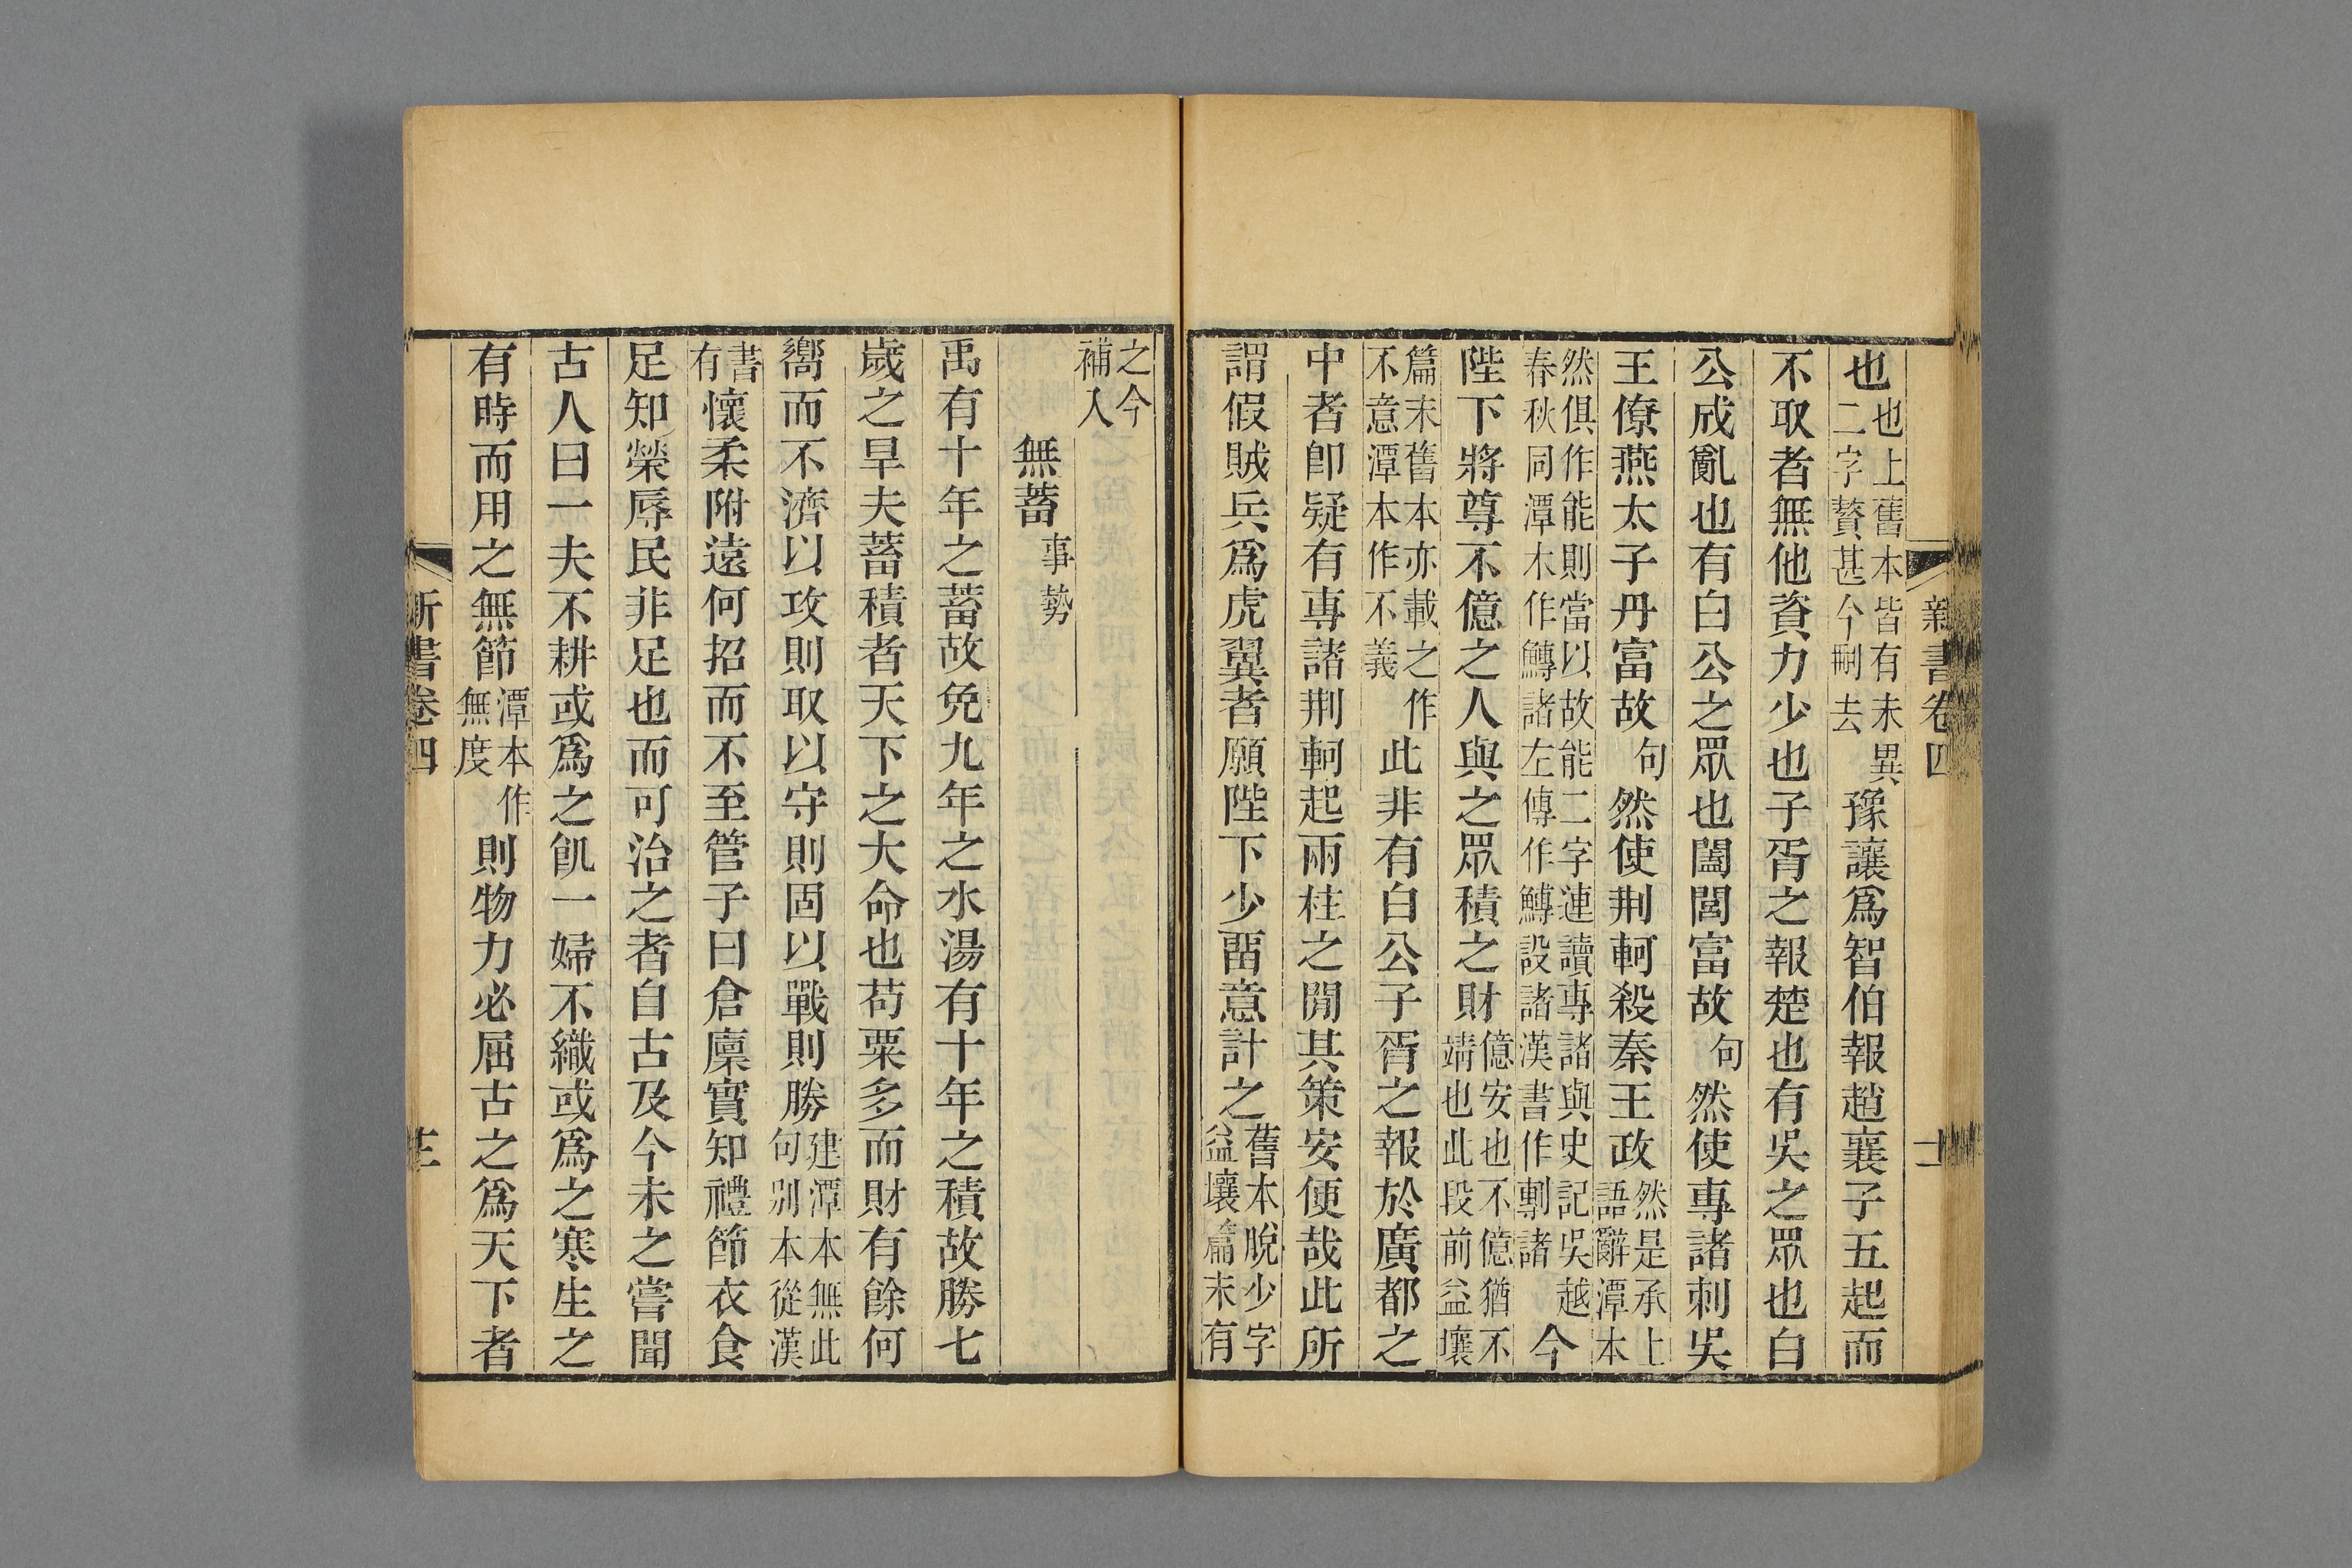 新書卷四
也也上舊本皆有未異二字贅甚今刪去豫讓爲智伯報趙襄子五起而
不取者無他資力少也子胥之報楚也有吳之眾也白
公成亂也有白公之眾也闔閭富故句然使專諸刺吳
王僚燕太子丹富故句然使荆軻殺秦王政然是承上語辭潭本
然俱作能則當以故能二字連讀專諸與史記吳越春秋同潭木作鱄諸左傳作鱄設諸漢書作剸諸今
陛下將尊不億之人與之眾積之財億安也不億猶不靖也此段前益壤
篇末舊本亦載之作不意潭本作不義此非有白公子胥之報於廣都之
中者卽疑有專諸荆軻起兩柱之閒其策安便哉此所
謂假賊兵爲虎翼者願陛下少畱意計之舊本脫少字益壤篇末有
之今補入
無蓄事勢
禹有十年之蓄故免九年之水湯有十年之積故勝七
歲之旱夫蓄積者天下之大命也苟粟多而財有餘何
嚮而不濟以攻則取以守則固以戰則勝建潭本無此句别本從漢
書有懷柔附遠何招而不至管子曰倉廩實知禮節衣食
足知榮辱民非足也而可治之者自古及今未之嘗聞
古人曰一夫不耕或爲之飢一婦不織或爲之寒生之
有時而用之無節潭本作無度則物力必屈古之爲天下者
新書卷四